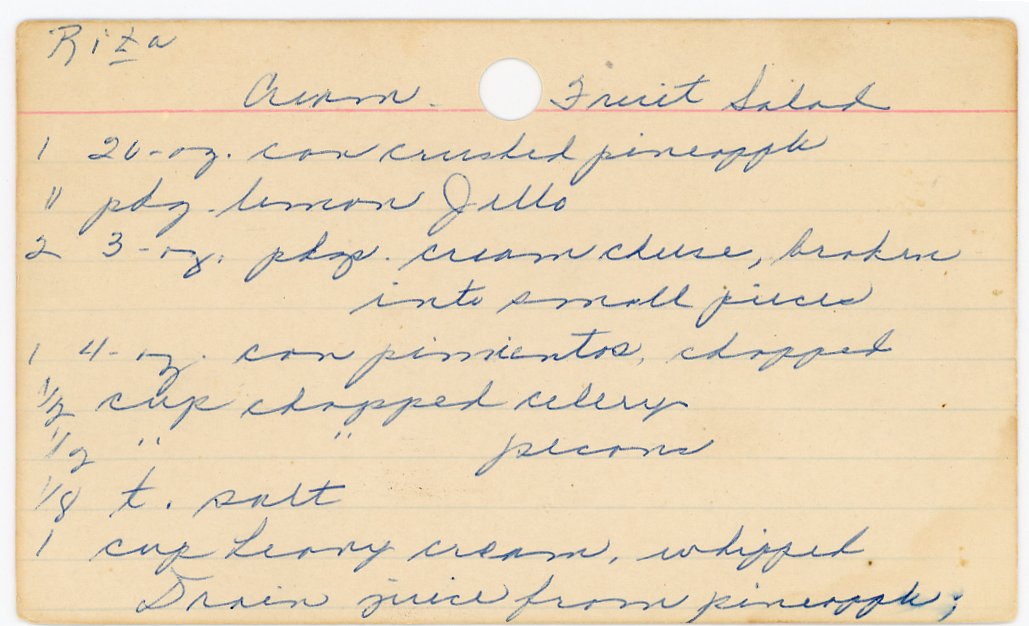 Rita
Cream Fruit Salad
1 20-oz. can crushed pineapple
" pkg. lemon Jello
2 3-oz. pkgs. cream cheese, broken
into small pieces
1 4-oz. can pimientos, chopped
1/2 cup chopped celery
1/2 " " pecans
1/8 t. salt
1 cup heavy cream, whipped
Drain juice from pineapple;